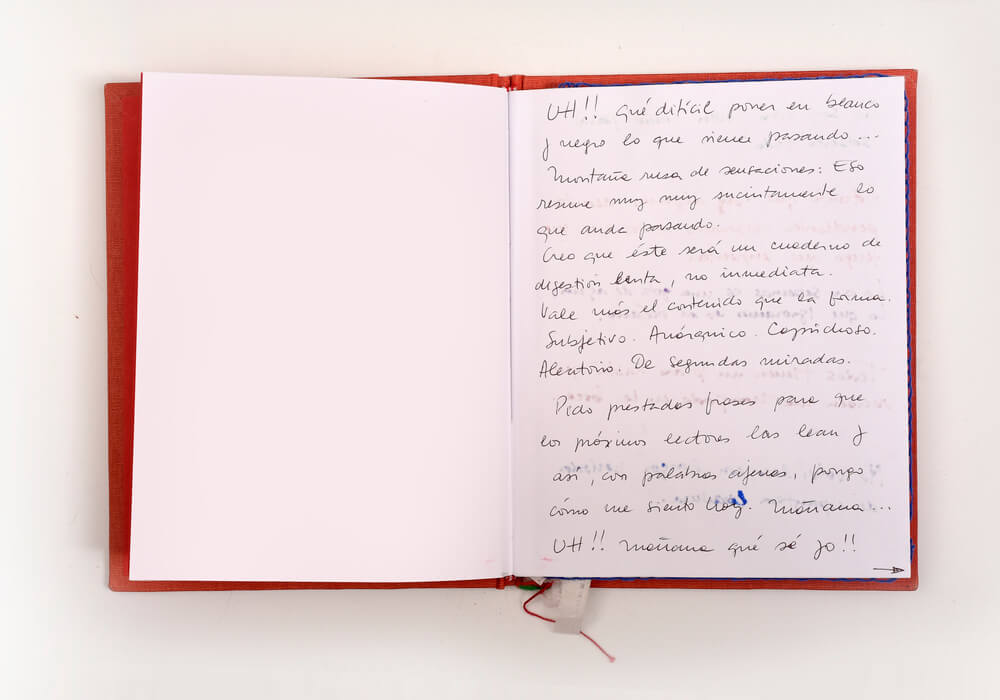 UH!! Qué difícil poner en blanco
y negro lo que viene pasando...
Montaña rusa de sensaciones: Eso
resume muy muy sucintamente lo
que anda pasando.
Creo que éste será un cuaderno de
digestión lenta, no inmediata.
Vale más el contenido que la forma.
Subjetivo. Anárquico. Caprichoso.
Aleatorio. De segundas miradas.
Pido prestadas frases para que
los próximos lectores las lean y
así, con palabras ajenas, pongo
cómo me siento hoy. Mañana...
UH!! Mañana qué sé yo!!